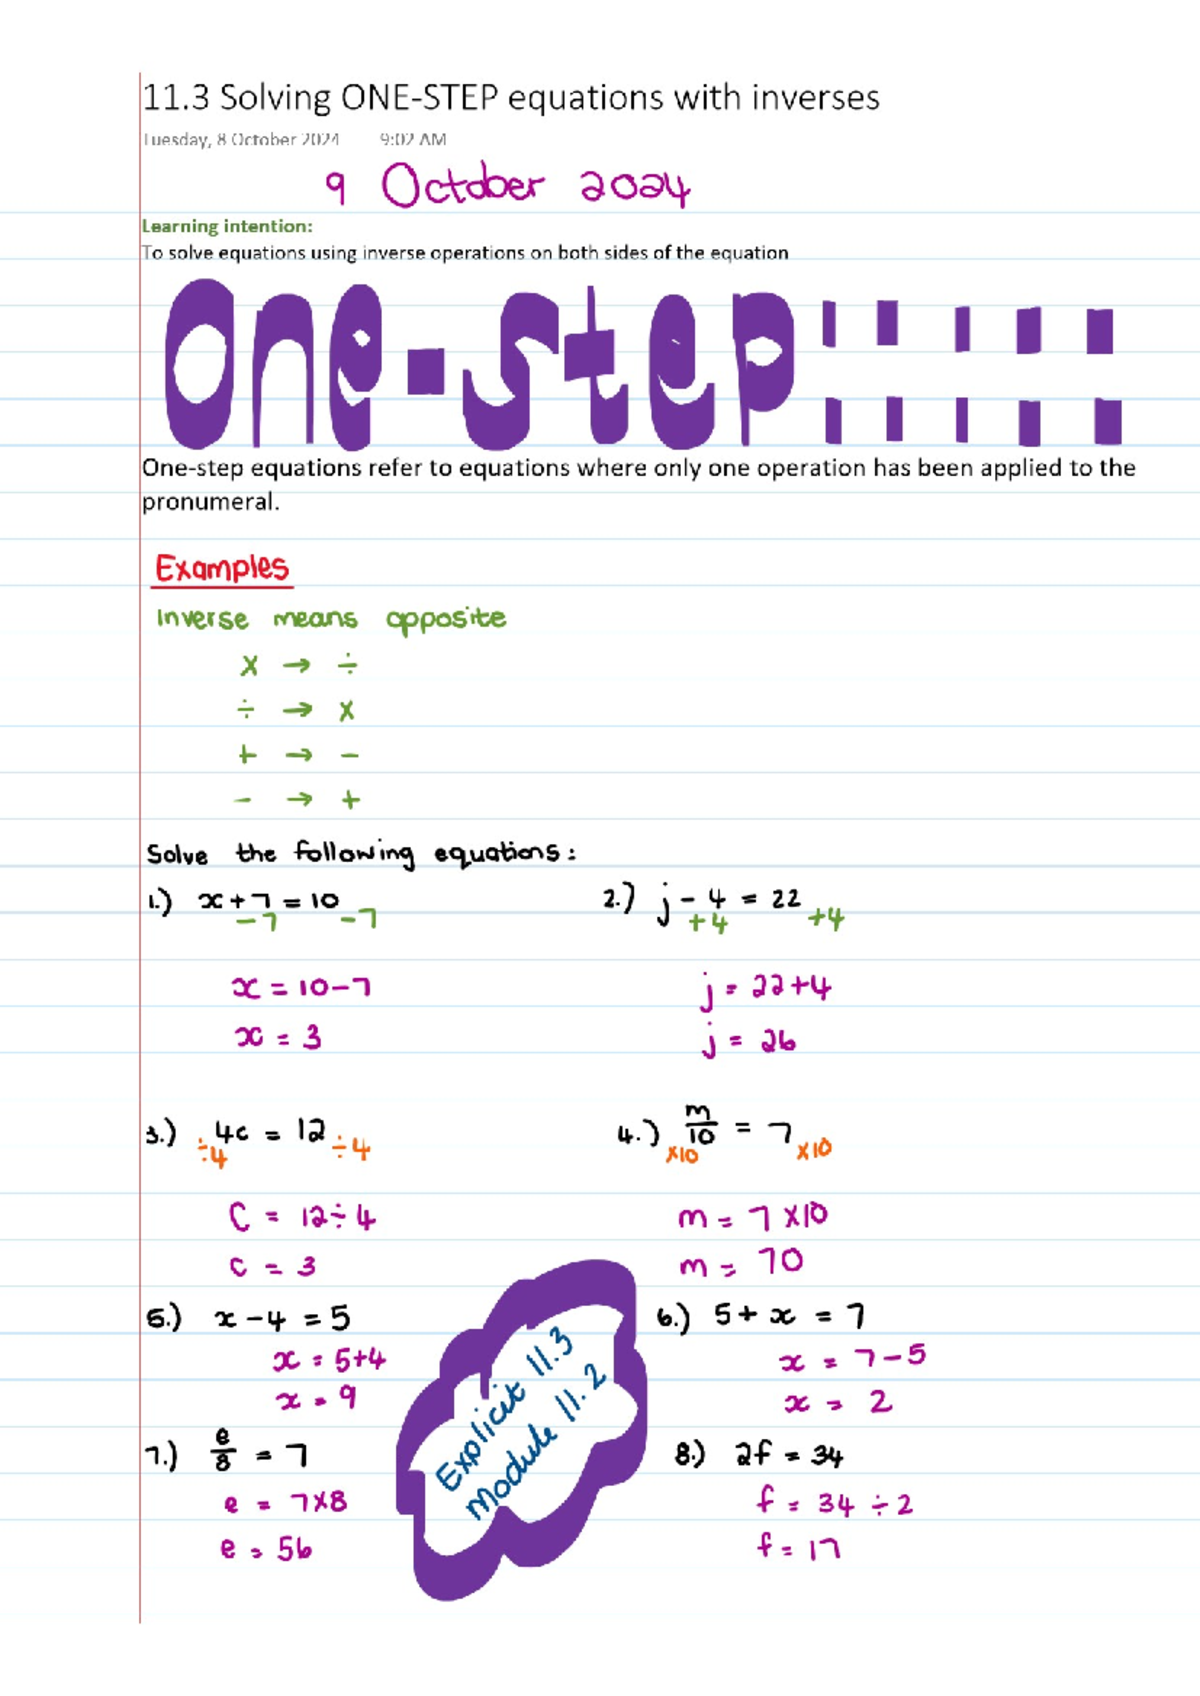 11.3 Solving ONE-STEP equations with inverses
Tuesday, 8 October 2024 9:02 AM
9 October 2024
Learning intention:
To solve equations using inverse operations on both sides of the equation
One-step
One-step equations refer to equations where only one operation has been applied to the
pronumeral.
Examples
Inverse means opposite
x → ÷
÷ → x
+ → -
- → +
Solve the following equations:
1.) x + 7 = 10
-7 -7
x = 10 - 7
x = 3
2.) j - 4 = 22
+4 +4
j = 22 + 4
j = 26
3.) 4c = 12
÷4 ÷4
c = 12 ÷ 4
c = 3
4.) m/10 = 7
x10 x10
m = 7 x 10
m = 70
5.) x - 4 = 5
x = 5 + 4
x = 9
6.) 5 + x = 7
x = 7 - 5
x = 2
7.) e/8 = 7
e = 7 x 8
e = 56
8.) 2f = 34
f = 34 ÷ 2
f = 17
Explicit 11.3
Module 11.2